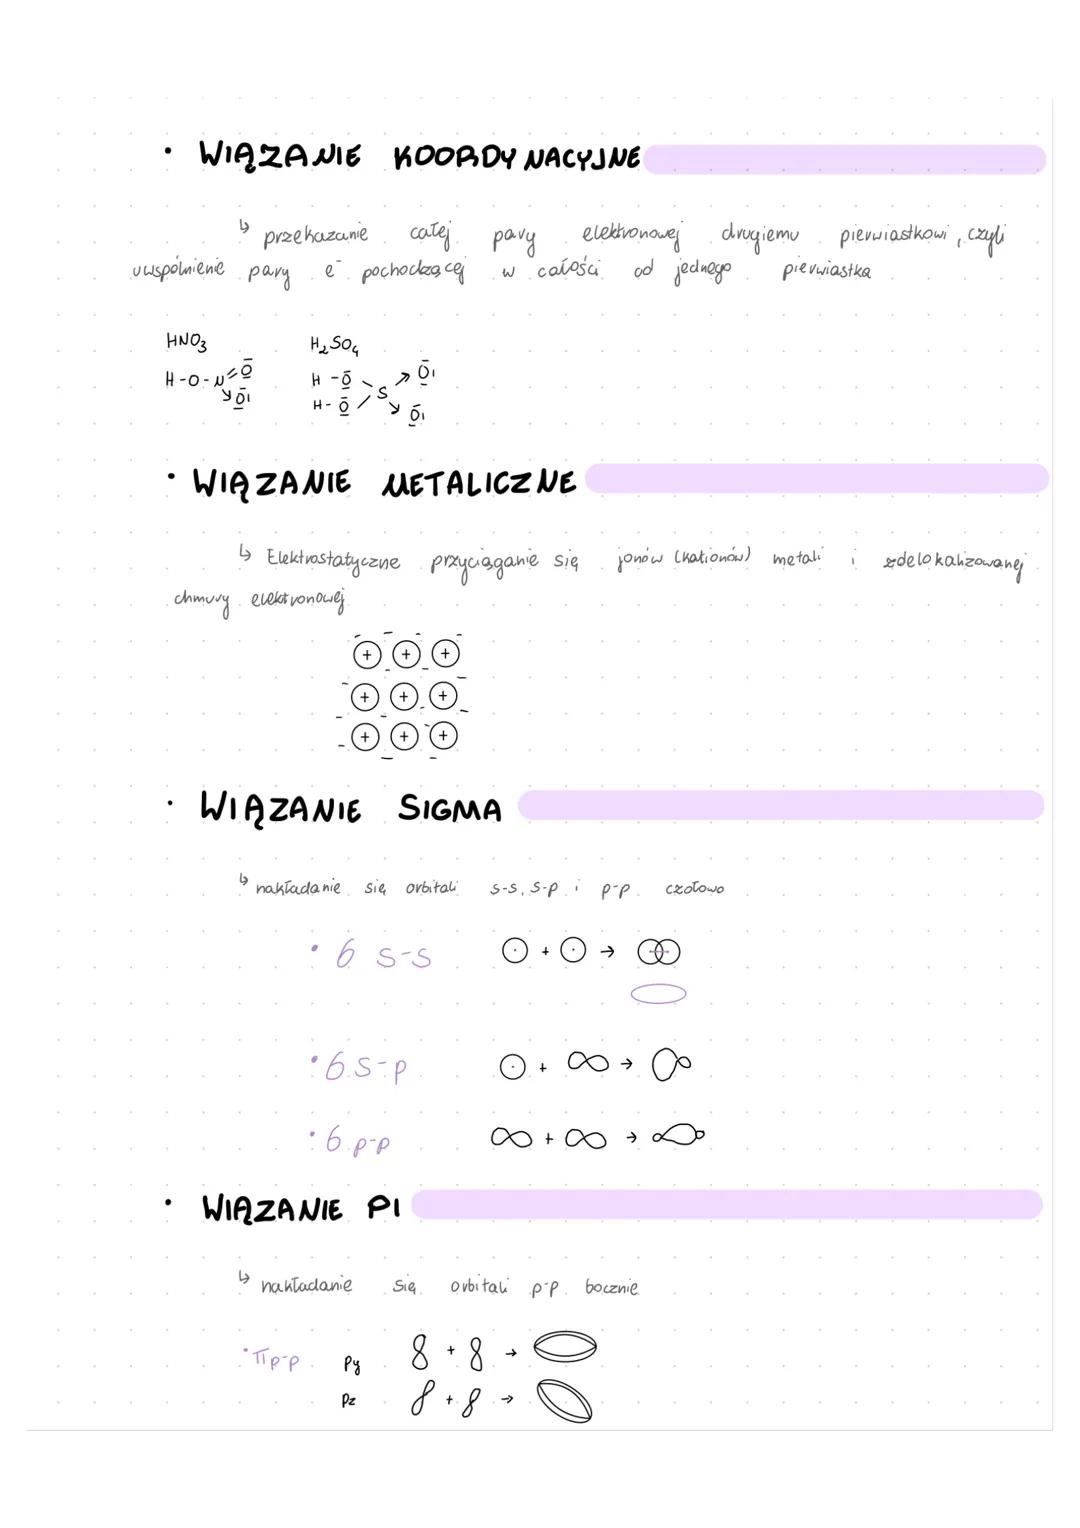 • WIĄZANIE KOORDYNACYJNE
↳ przekazanie całej pary elektronowej drugiemu pierwiastkowi, czyli
uwspólnienie pary e⁻ pochodzącej w całości od jednego pierwiastka
HNO₃ H₂SO₄
H-O-N O O
H-O S O
H-O O
• WIĄZANIE METALICZNE
↳ Elektrostatyczne przyciąganie się jonów (kationów) metali i zdelokalizowanej
chmury elektronowej
+ + +
+ + +
+ + +
• WIĄZANIE SIGMA
↳ nakładanie się orbitali s-s, s-p i p-p czołowo
• б s-s + →
• б s-p + →
• б p-p + →
• WIĄZANIE PI
↳ nakładanie się orbitali p-p bocznie
• π p-p Py 8 + 8 →
Pz 8 + 8 →